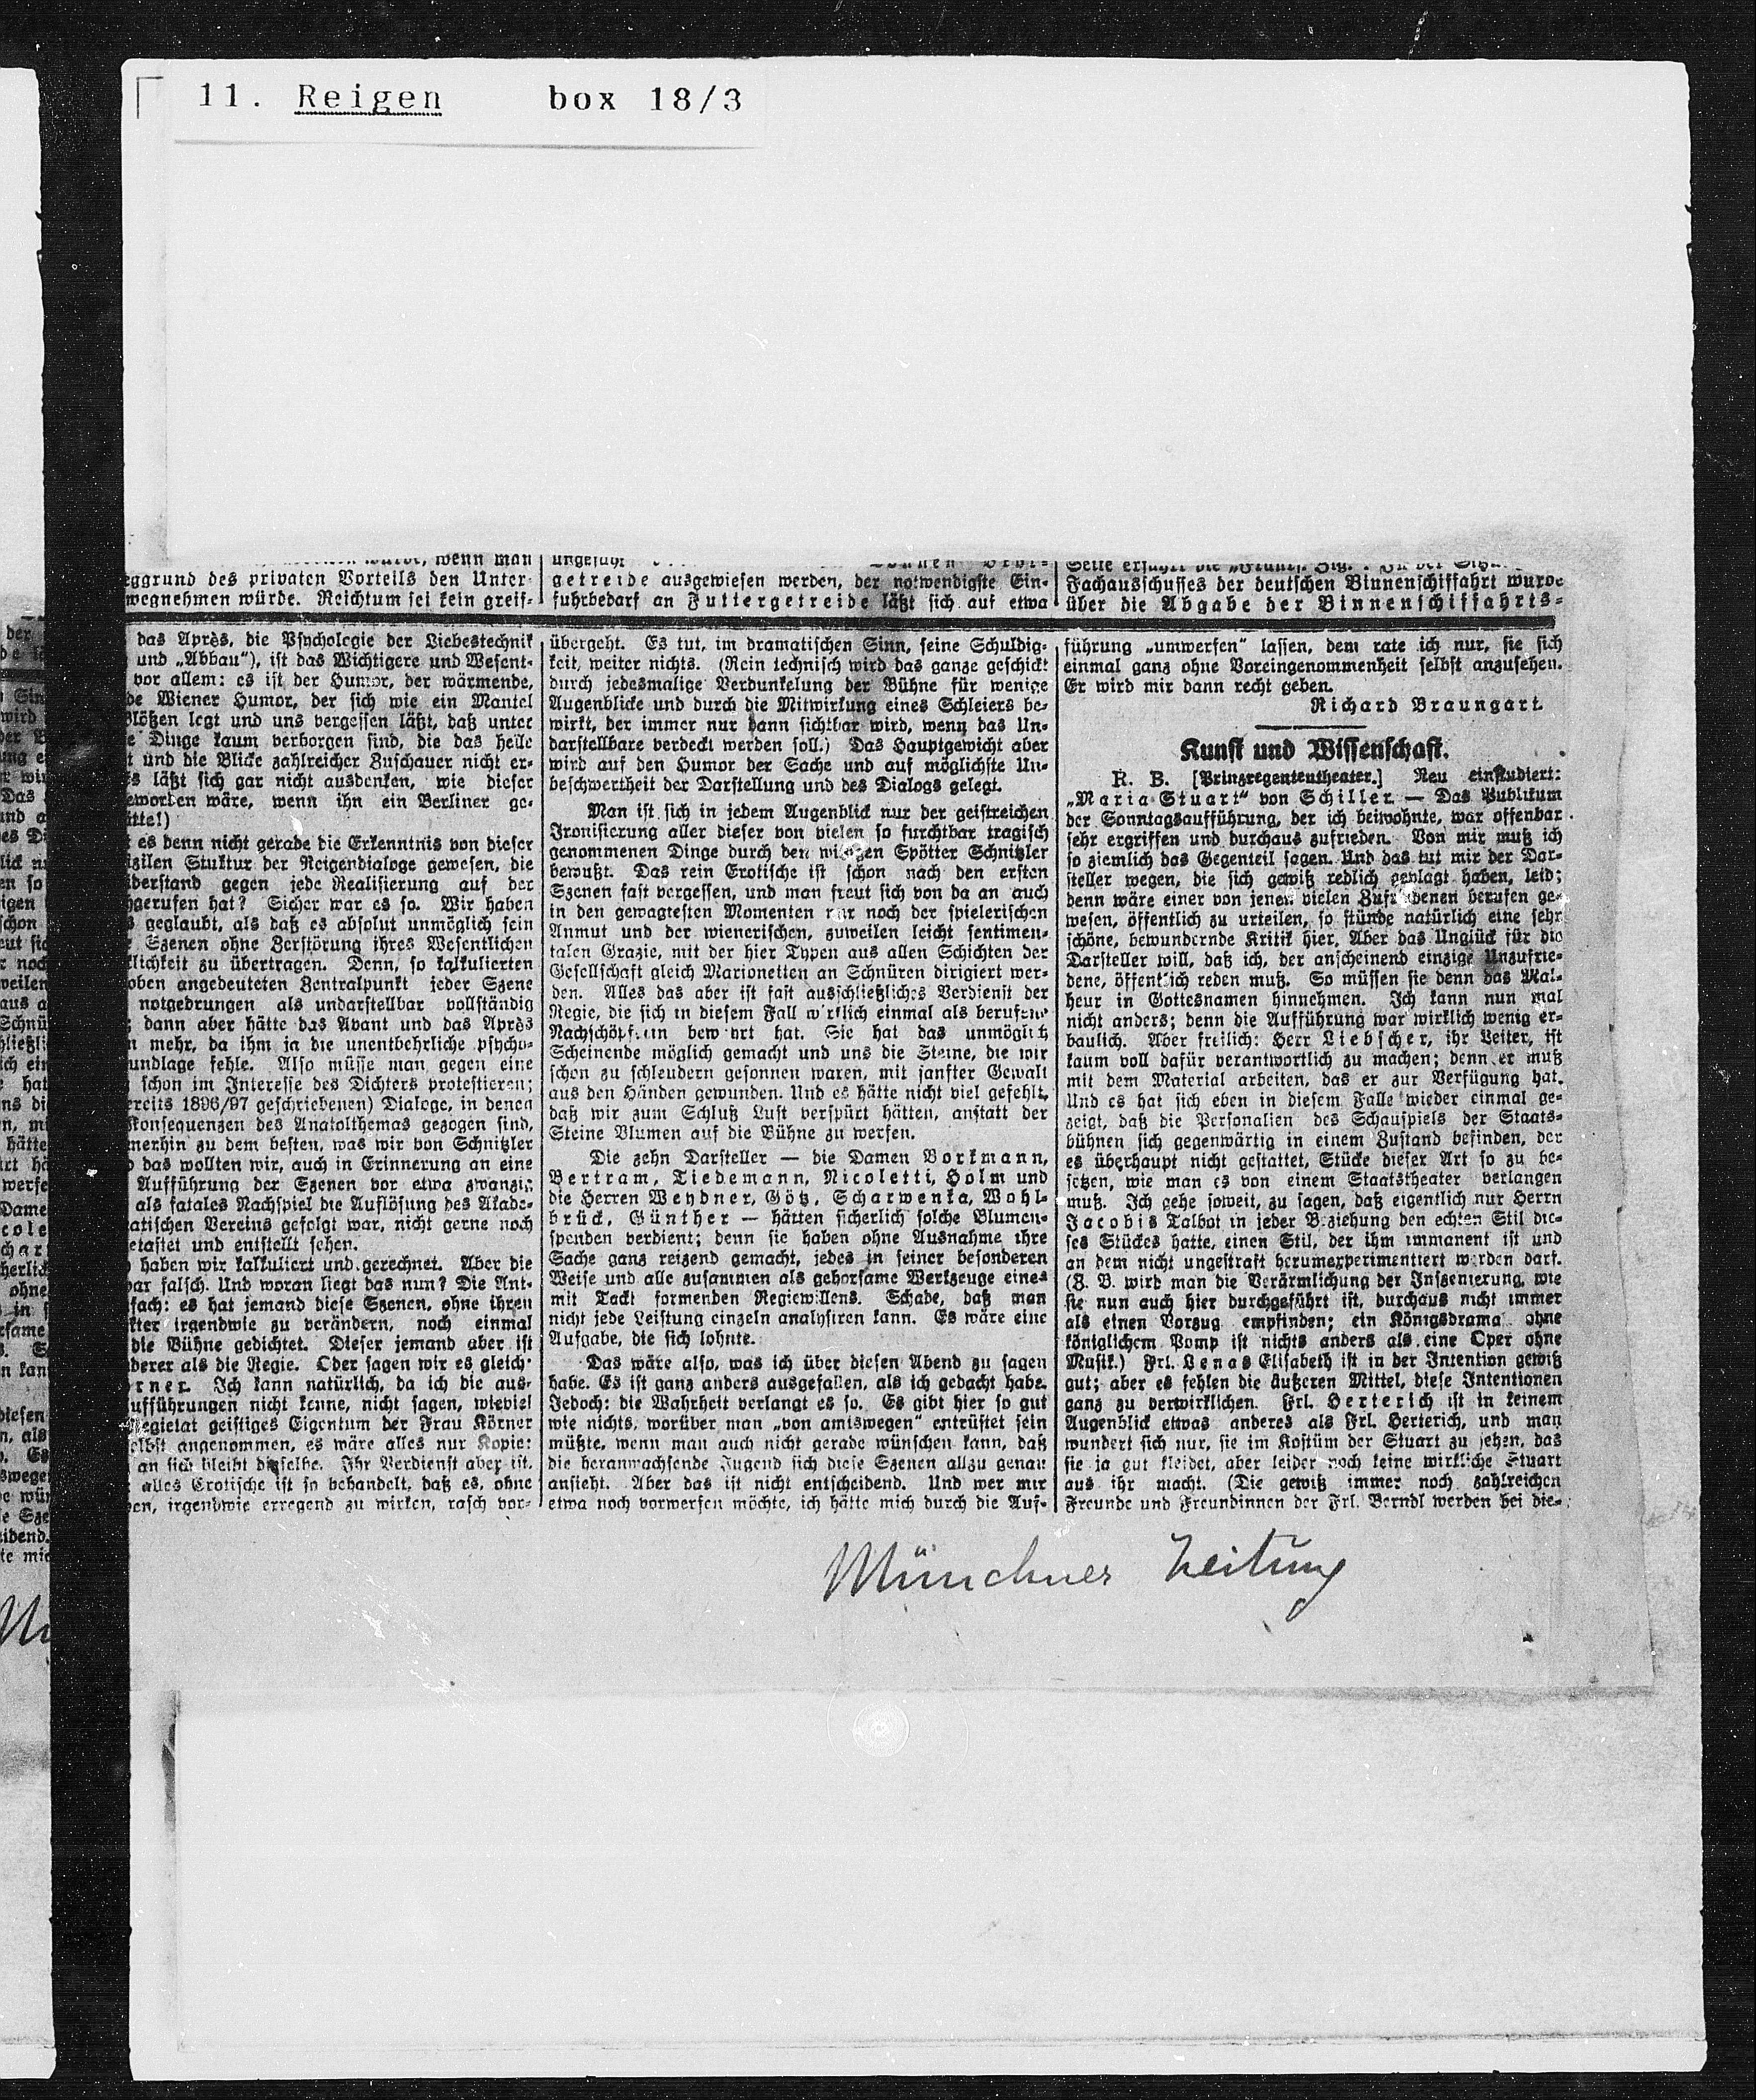 11. Reigen box 18/3
wenn man
eggrund des privaten Vorteils den Unter-
wegnehmen würde. Reichtum sei kein greif-
das Après, die Psychologie der Liebestechnik
und „Abbau“), ist das Wichtigere und Wesent-
vor allem: es ist der Humor, der wärmende,
de Wiener Humor, der sich wie ein Mantel
Blößen legt und uns vergessen läßt, daß unter
e Dinge kaum verborgen sind, die das helle
t und die Blicke zahlreicher Zuschauer nicht er-
s läßt sich gar nicht ausdenken, wie dieser
eworden wäre, wenn ihn ein Berliner ge-
ätte!)
t es denn nicht gerade die Erkenntnis von dieser
izilen Stuktur der Reigendialoge gewesen, die
iderstand gegen jede Realisierung auf der
hgerufen hat? Sicher war es so. Wir haben
s geglaubt, als daß es absolut unmöglich sein
e Szenen ohne Zerstörung ihres Wesentlichen
klichkeit zu übertragen. Denn, so kalkulierten
oben angedeuteten Zentralpunkt jeder Szene
notgedrungen als undarstellbar vollständig
; dann aber hätte das Avant und das Après
n mehr, da ihm ja die unentbehrliche psycho-
undlage fehle. Also müsse man gegen eine
schon im Interesse des Dichters protestieren;
ereits 1896/97 geschriebenen) Dialoge, in denen
Konsequenzen des Anatolthemas gezogen sind,
merhin zu dem besten, was wir von Schnitzler
das wollten wir, auch in Erinnerung an eine
Aufführung der Szenen vor etwa zwanzig
als fatales Nachspiel die Auflösung des Akade-
atischen Vereins gefolgt war, nicht gerne noch
etastet und entstellt sehen.
haben wir kalkuliert und gerechnet. Aber die
var falsch. Und woran liegt das nun? Die Ant-
fach: es hat jemand diese Szenen, ohne ihren
kter irgendwie zu verändern, noch einmal
die Bühne gedichtet. Dieser jemand aber ist
derer als die Regie. Oder sagen wir es gleich:
rner. Ich kann natürlich, da ich die aus-
ufführungen nicht kenne, nicht sagen, wieviel
Regietat geistiges Eigentum der Frau Körner
elbst angenommen, es wäre alles nur Kopie:
an sich bleibt dieselbe. Ihr Verdienst aber ist,
alles Erotische ist so behandelt, daß es, ohne
en, irgendwie erregend zu wirken, rasch vor-
ungefähr
getreide ausgewiesen werden, der notwendigste Ein-
fuhrbedarf an Futtergetreide läßt sich auf etwa
übergeht. Es tut, im dramatischen Sinn, seine Schuldig-
keit, weiter nichts. (Rein technisch wird das ganze geschickt
durch jedesmalige Verdunkelung der Bühne für wenige
Augenblicke und durch die Mitwirkung eines Schleiers be-
wirkt, der immer nur dann sichtbar wird, wenn das Un-
darstellbare verdeckt werden soll.) Das Hauptgewicht aber
wird auf den Humor der Sache und auf möglichste Un-
beschwertheit der Darstellung und des Dialogs gelegt.
Man ist sich in jedem Augenblick nur der geistreichen
Ironisierung aller dieser von vielen so furchtbar tragisch
genommenen Dinge durch den Spötter Schnitzler
bewußt. Das rein Erotische ist schon nach den ersten
Szenen fast vergessen, und man freut sich von da an auch
in den gewagtesten Momenten nur noch der spielerischen
Anmut und der wienerischen, zuweilen leicht sentimen-
talen Grazie, mit der hier Typen aus allen Schichten der
Gesellschaft gleich Marionetten an Schnüren dirigiert wer-
den. Alles das aber ist fast ausschließliches Verdienst der
Regie, die sich in diesem Fall wirklich einmal als berufene
Nachschöpferin bewährt hat. Sie hat das unmöglich
Scheinende möglich gemacht und uns die Steine, die wir
schon zu schleudern gesonnen waren, mit sanfter Gewalt
aus den Händen gewunden. Und es hätte nicht viel gefehlt,
daß wir zum Schluß Lust verspürt hätten, anstatt der
Steine Blumen auf die Bühne zu werfen.
Die zehn Darsteller — die Damen Borkmann,
Bertram, Tiedemann, Nicoletti, Holm und
die Herren Weydner, Götz, Scharwenka, Wohl-
brück, Günther — hätten sicherlich solche Blumen-
spenden verdient; denn sie haben ohne Ausnahme ihre
Sache ganz reizend gemacht, jedes in seiner besonderen
Weise und alle zusammen als gehorsame Werkzeuge eines
mit Tackt formenden Regiewillens. Schade, daß man
nicht jede Leistung einzeln analysiren kann. Es wäre eine
Aufgabe, die sich lohnte.
Das wäre also, was ich über diesen Abend zu sagen
habe. Es ist ganz anders ausgefallen, als ich gedacht habe.
Jedoch: die Wahrheit verlangt es so. Es gibt hier so gut
wie nichts, worüber man „von amtswegen“ entrüstet sein
müßte, wenn man auch nicht gerade wünschen kann, daß
die heranwachsende Jugend sich diese Szenen allzu genau
ansieht. Aber das ist nicht entscheidend. Und wer mir
etwa noch vorwerfen möchte, ich hätte mich durch die Auf-
Seite erfährt die
Fachausschusses der deutschen Binnenschiffahrt wurde
über die Abgabe der Binnenschiffahrts-
führung „umwerfen“ lassen, dem rate ich nur, sie sich
einmal ganz ohne Voreingenommenheit selbst anzusehen.
Er wird mir dann recht geben.
Richard Braungart.
Kunst und Wissenschaft.
R. B. [Prinzregententheater.] Neu einstudiert:
„Maria Stuart“ von Schiller. — Das Publikum
der Sonntagsaufführung, der ich beiwohnte, war offenbar
sehr ergriffen und durchaus zufrieden. Von mir muß ich
so ziemlich das Gegenteil sagen. Und das tut mir der Dar-
steller wegen, die sich gewiß redlich geplagt haben, leid;
denn wäre einer von jenen vielen Zufriedenen berufen ge-
wesen, öffentlich zu urteilen, so stünde natürlich eine sehr
schöne, bewundernde Kritik hier. Aber das Unglück für die
Darsteller will, daß ich, der anscheinend einzige Unzufrie-
dene, öffentlich reden muß. So müssen sie denn das Mal-
heur in Gottesnamen hinnehmen. Ich kann nun mal
nicht anders; denn die Aufführung war wirklich wenig er-
baulich. Aber freilich: Herr Liebscher, ihr Leiter, ist
kaum voll dafür verantwortlich zu machen; denn er muß
mit dem Material arbeiten, das er zur Verfügung hat.
Und es hat sich eben in diesem Falle wieder einmal ge-
zeigt, daß die Personalien des Schauspiels der Staats-
bühnen sich gegenwärtig in einem Zustand befinden, der
es überhaupt nicht gestattet, Stücke dieser Art so zu be-
setzen, wie man es von einem Staatstheater verlangen
muß. Ich gehe soweit, zu sagen, daß eigentlich nur Herrn
Jacobis Talbot in jeder Beziehung den echten Stil die-
ses Stückes hatte, einen Stil, der ihm immanent ist und
an dem nicht ungestraft herumexperimentiert werden darf.
(Z. B. wird man die Verärmlichung der Inszenierung, wie
sie nun auch hier durchgeführt ist, durchaus nicht immer
als einen Vorzug empfinden; ein Königsdrama ohne
königlichem Pomp ist nichts anders als eine Oper ohne
Musik.) Frl. Lenas Elisabeth ist in der Intention gewiß
gut; aber es fehlen die äußeren Mittel, diese Intentionen
ganz zu verwirklichen. Frl. Herterich ist in keinem
Augenblick etwas anderes als Frl. Herterich, und man
wundert sich nur, sie im Kostüm der Stuart zu sehen, das
sie ja gut kleidet, aber leider noch keine wirkliche Stuart
aus ihr macht. (Die gewiß immer noch zahlreichen
Freunde und Freundinnen der Frl. Berndl werden bei die-
Münchner Zeitung